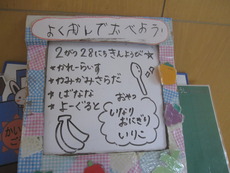 よくかんでたべよう
2がつ28にちきんようび
かれーらいす
わかめさらだ
ばなな
よーぐると
おやつ
いなり
おにぎり
いりこ